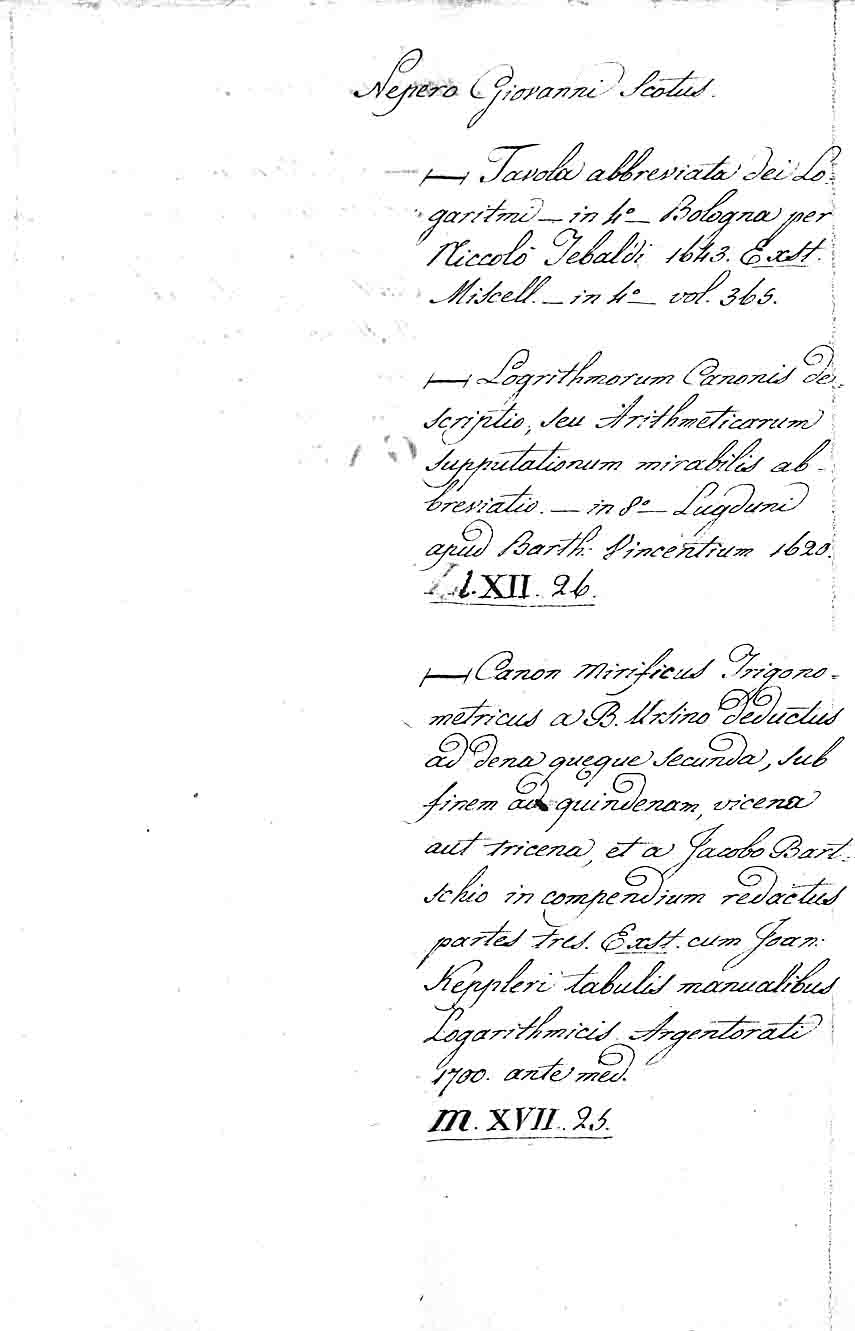 Nepero Giovanni Scotus.
— Tavola abbreviata dei Lo-
garitmi — in 4º — Bologna per
Niccolò Tebaldi 1643. Exst.
Miscell. — in 4º — vol. 365.
— Logrithmorum Canonis de-
scriptio, seu Arithmeticarum
supputationum mirabilis ab-
breviatio. — in 8º — Lugduni
apud Barth. Vincentium 1620.
l. XII. 26.
— Canon Mirificus Trigono-
metricus a B. Ursino deductus
ad dena quęque secunda, sub
finem ad quindenam, vicena
aut tricena, et a Jacobo Bart-
schio in compendium redactus
partes tres. Exst. cum Joan.
Keppleri tabulis manualibus
Logarithmicis. Argentorati
1700. ante med.
M. XVII. 25.